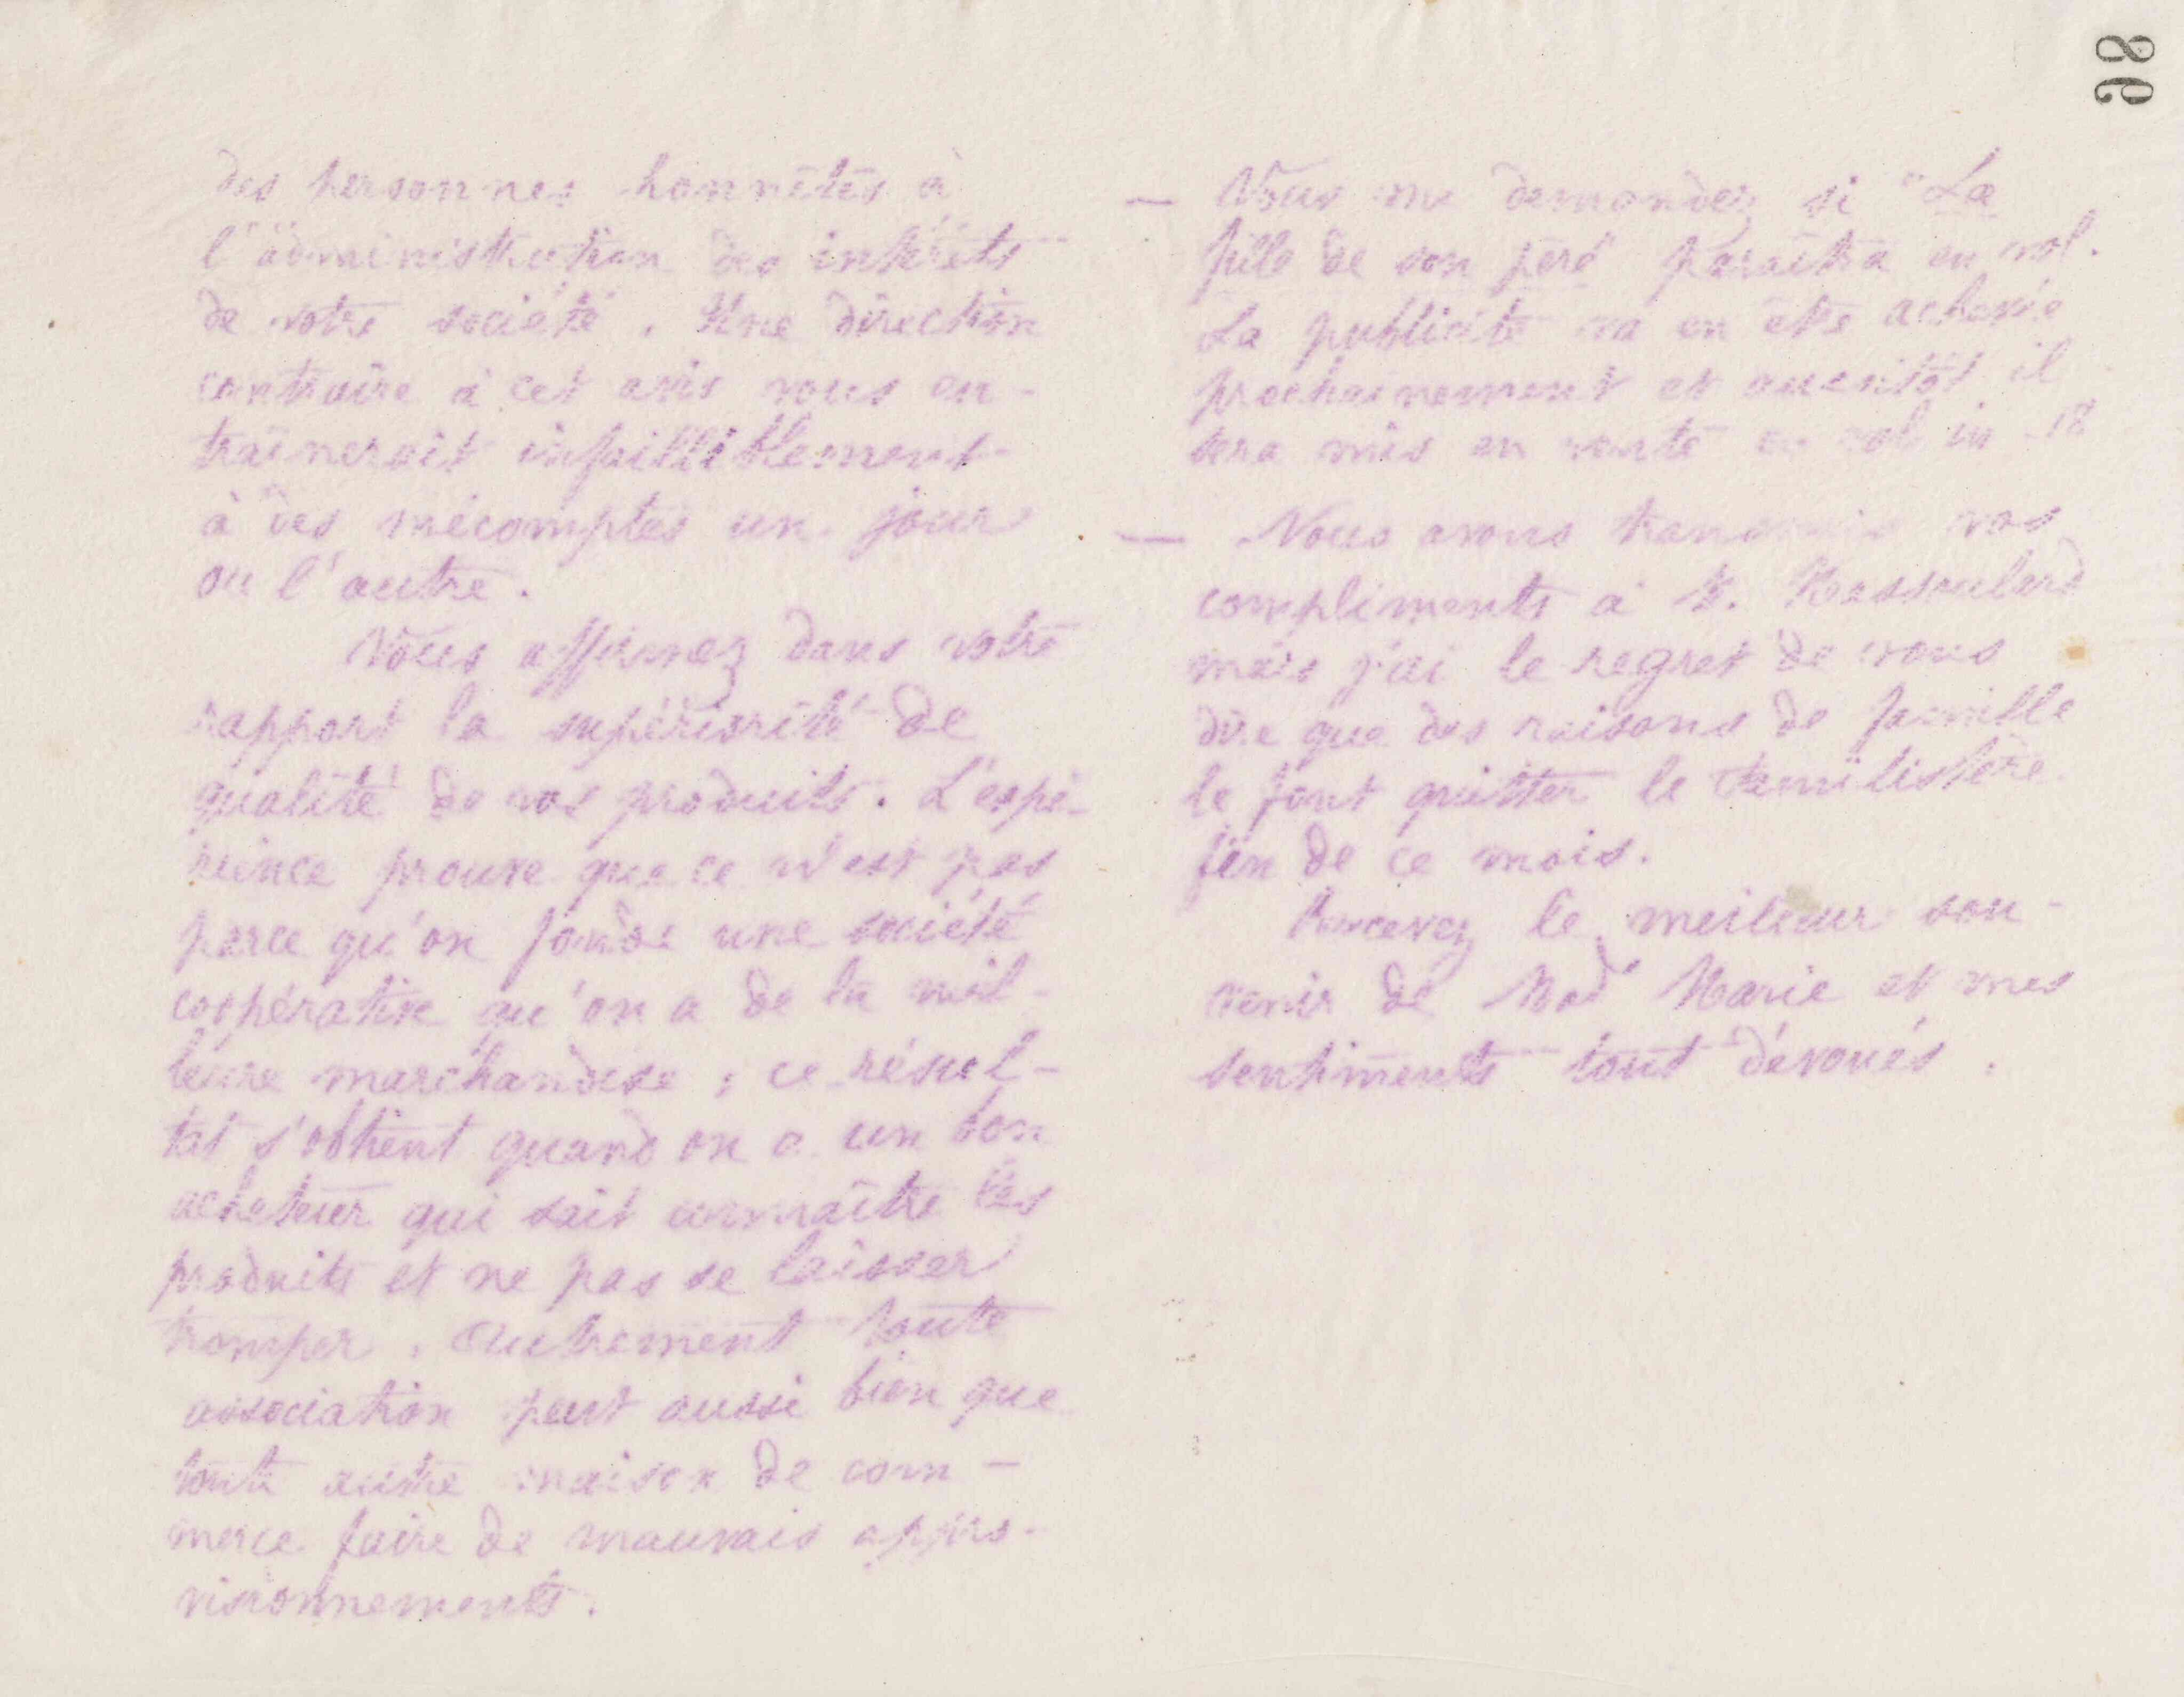 98
des personnes honnêtes à
l'administration des intérêts
de votre société. Une direction
contraire à cet avis vous en-
traînerait infailliblement
à des mécomptes un jour
ou l'autre.
Vous affirmez dans votre
rapport la supériorité de
qualité de vos produits. L'expé-
rience prouve que ce n'est pas
parce qu'on fonde une société
coopérative qu'on a de la meil-
leure marchandise ; ce résul-
tat s'obtient quand on a un bon
acheteur qui sait connaître les
produits et ne pas se laisser
tromper. Autrement toute
association peut aussi bien que
toute autre maison de com-
merce faire de mauvais appro-
visionnements.
— Vous me demandez si "La
fille de son père" paraîtra en vol.
La publicité va en être achevée
prochainement et aussitôt il
sera mis en vente en vol in-18
— Nous avons transmis vos
compliments à M.
mais j'ai le regret de vous
dire que des raisons de famille
le font quitter le Familistère
fin de ce mois.
Recevez le meilleur sou-
venir de Mad Marie et mes
sentiments tout dévoués.